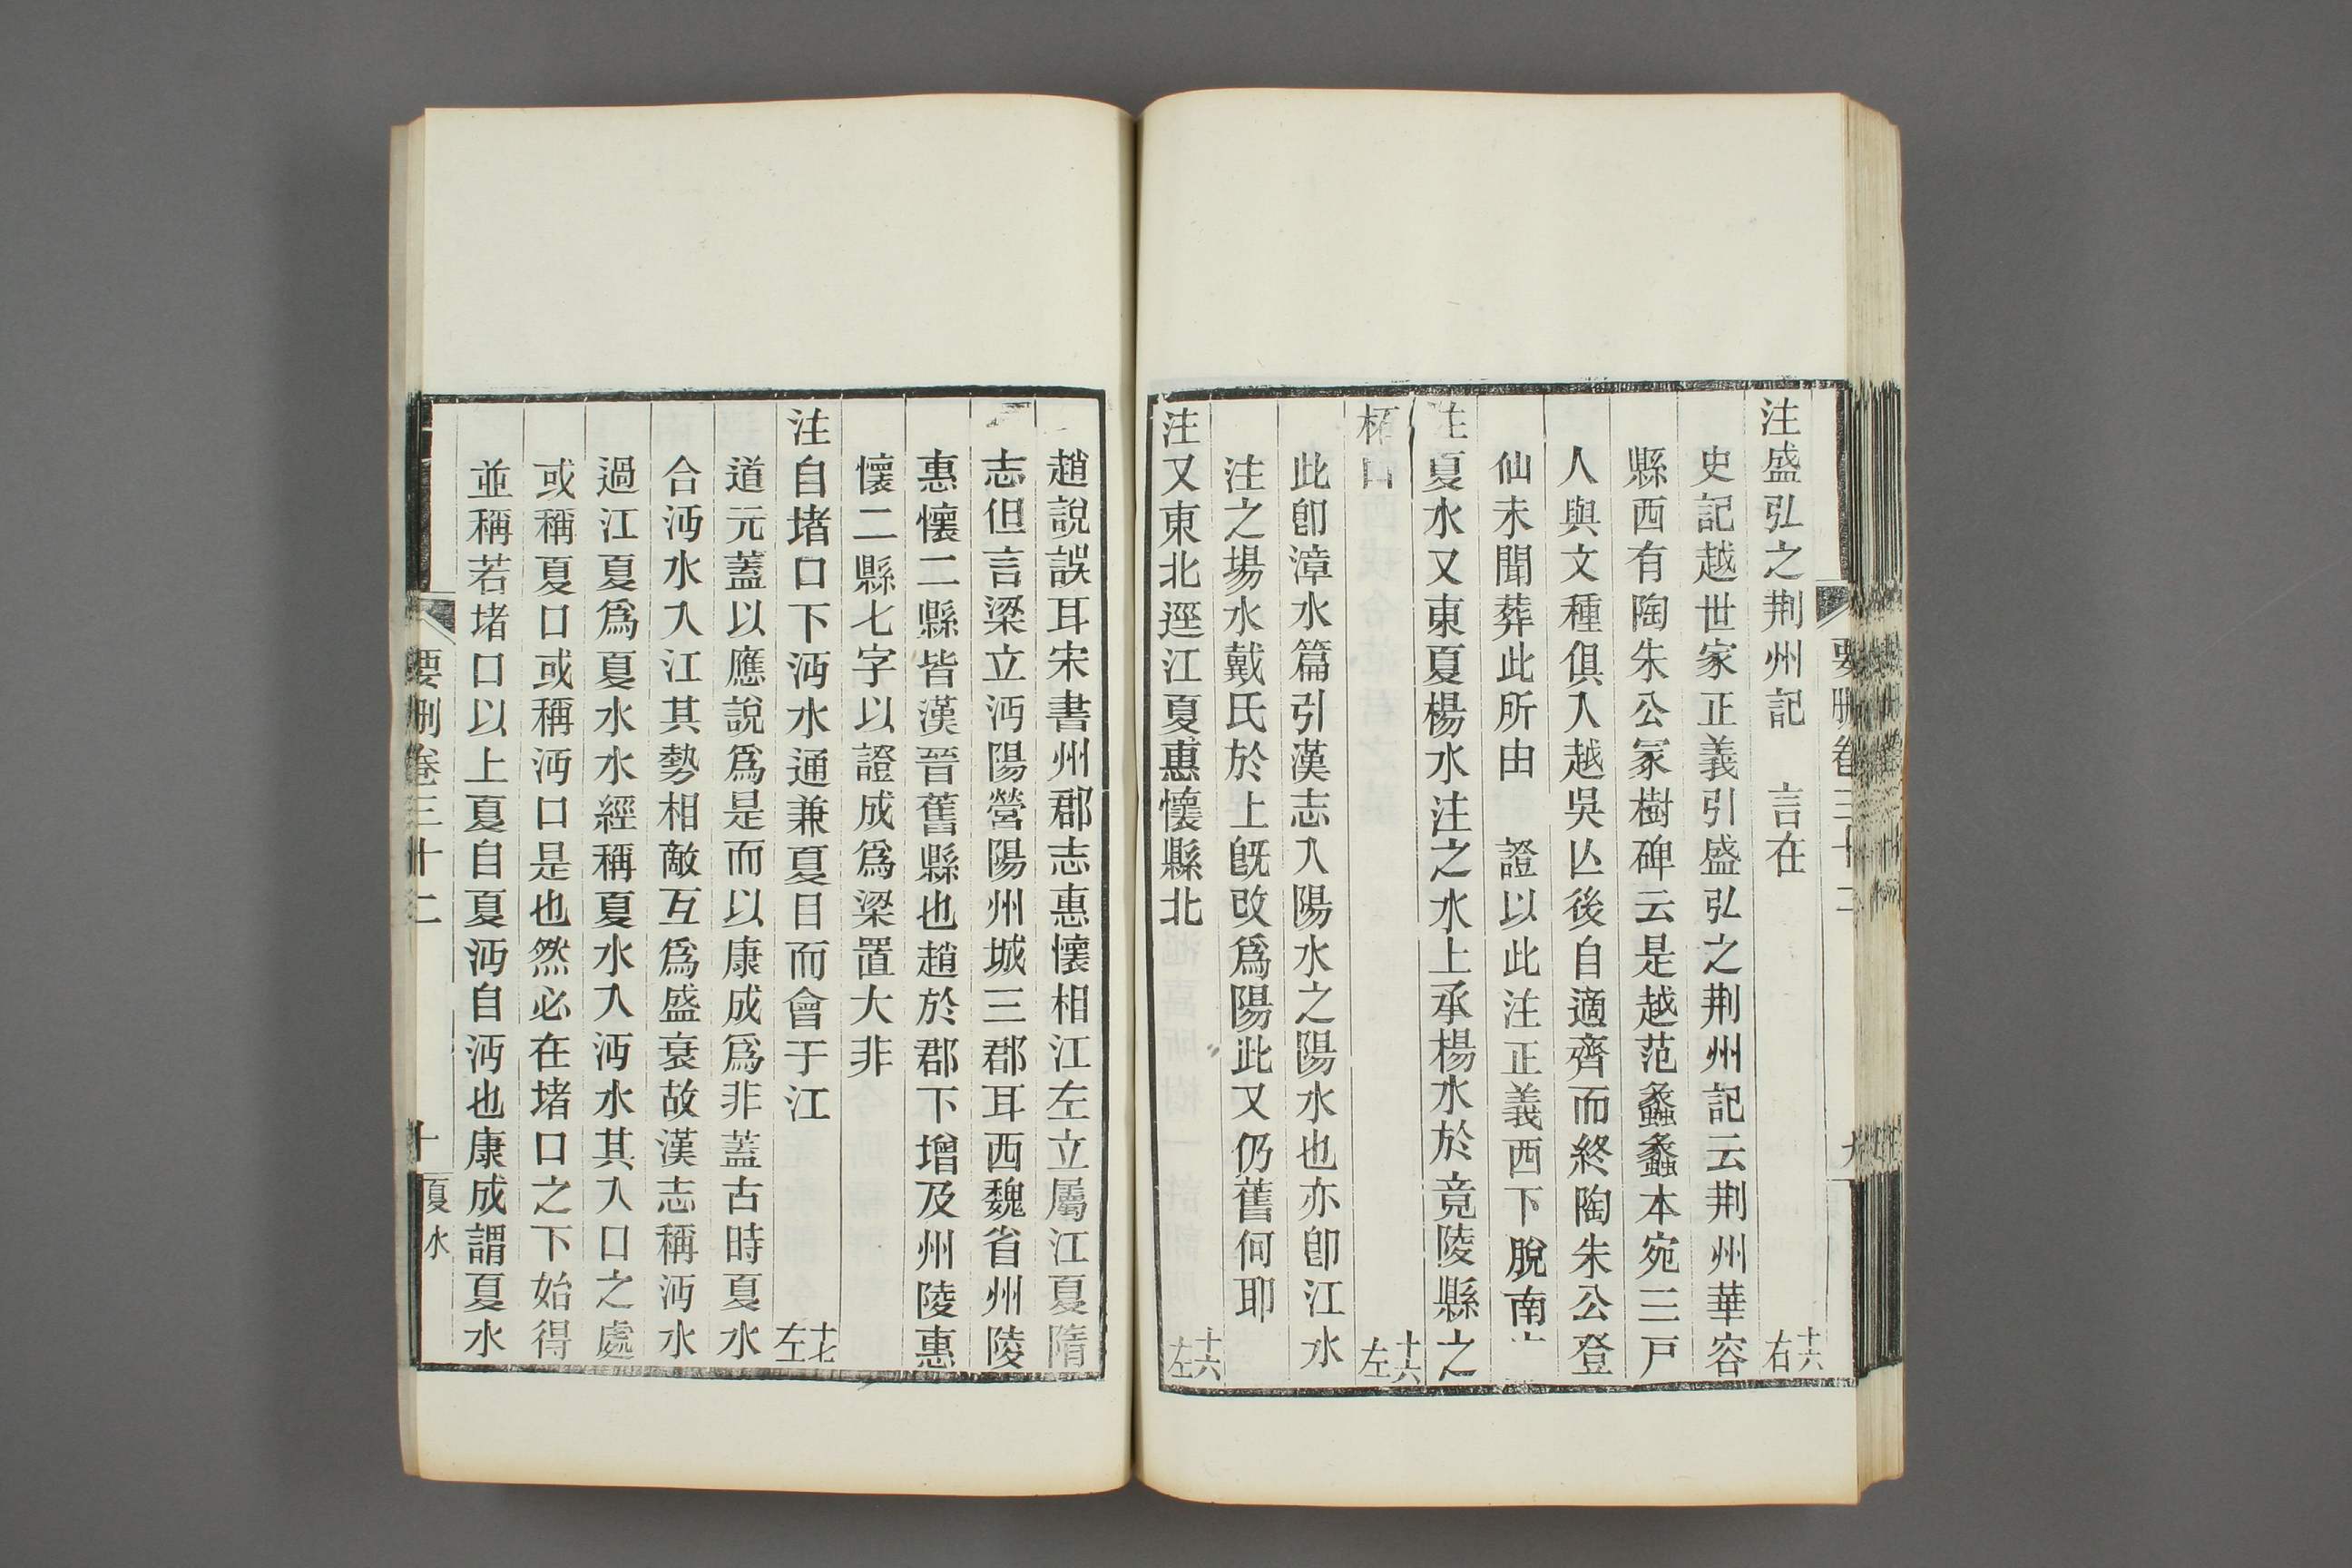 要刪卷三十二
注盛弘之荆州記　言在 十六右
史記越世家正義引盛弘之荆州記云荆州華容
縣西有陶朱公冢樹碑云是越范蠡蠡本宛三戸
人與文種俱入越吳亾後自適齊而終陶朱公登
仙未聞葬此所由　證以此注正義西下脫南
注夏水又東夏楊水注之水上承楊水於竟陵縣之
柘口 十六左
此卽漳水篇引漢志入陽水之陽水也亦卽江水
注之場水戴氏於上旣改爲陽此又仍舊何耶
注又東北逕江夏惠懷縣北 十六左
趙說誤耳宋書州郡志惠懷相江左立屬江夏隋
志但言梁立沔陽營陽州城三郡耳西魏省州陵
惠懷二縣皆漢晉舊縣也趙於郡下增及州陵惠
懷二縣七字以證成爲梁置大非
注自堵口下沔水通兼夏目而會于江 十七左
道元蓋以應說爲是而以康成爲非蓋古時夏水
合沔水入江其勢相敵互爲盛衰故漢志稱沔水
過江夏爲夏水水經稱夏水入沔水其入口之處
或稱夏口或稱沔口是也然必在堵口之下始得
並稱若堵口以上夏自夏沔自沔也康成謂夏水
要刪卷三十二　十　夏水